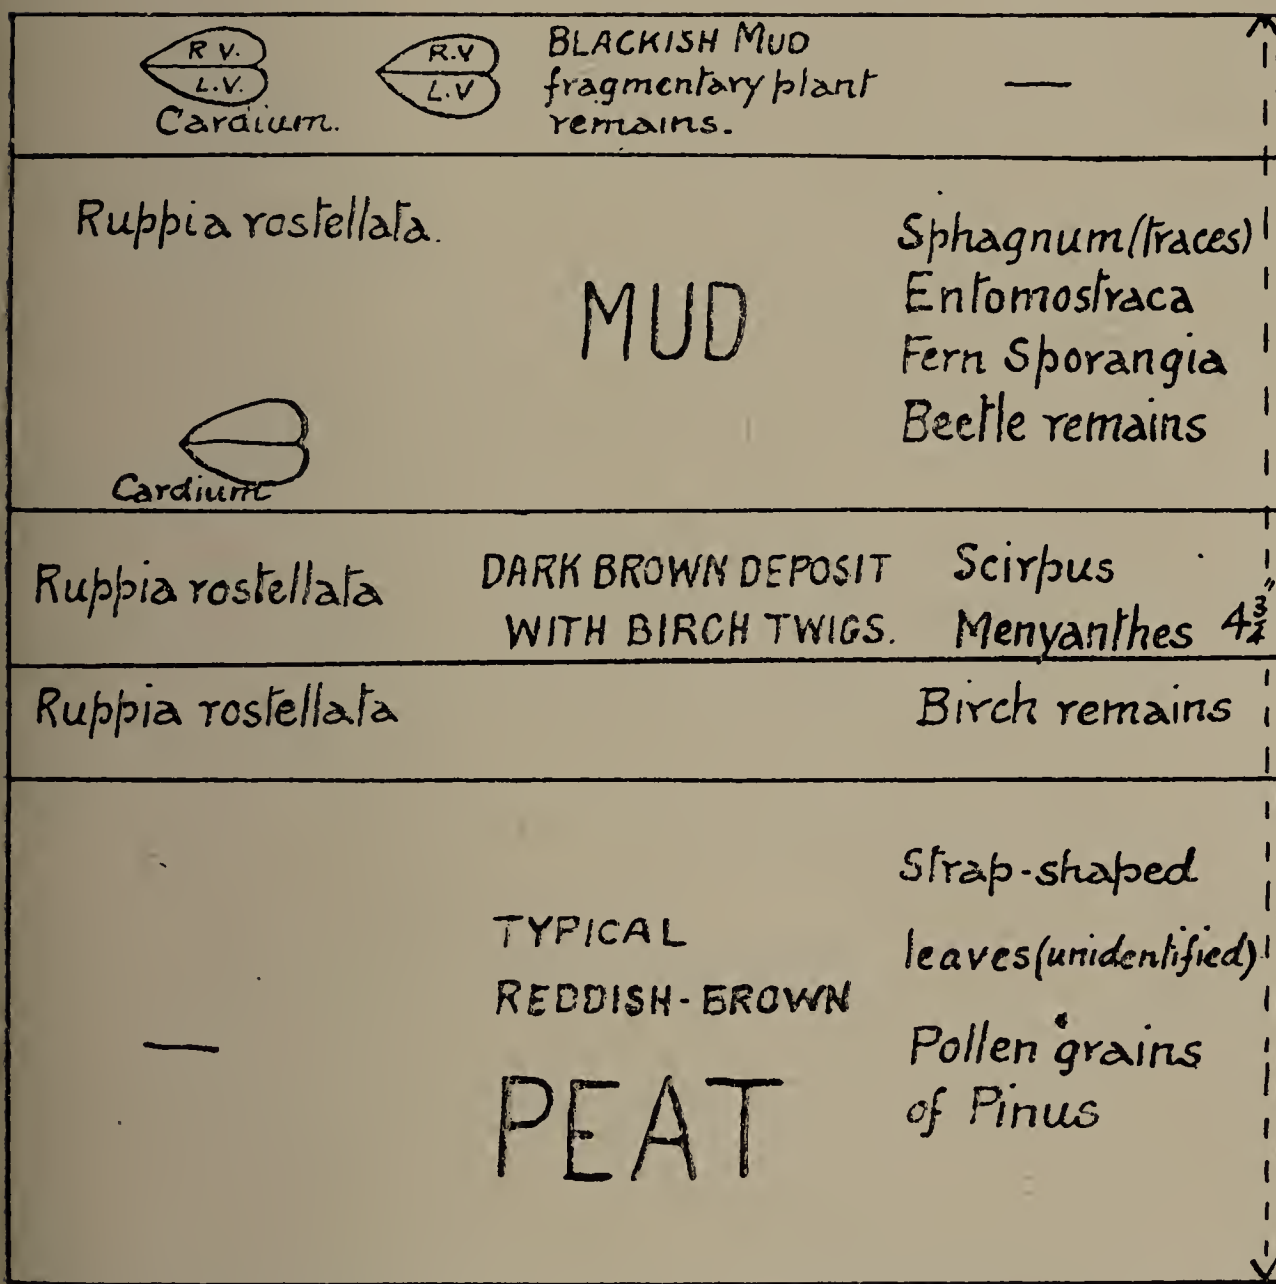 R V.
L.V.
Cardium.
R.V
L.V
BLACKISH MUD
fragmentary plant
remains.
—
Ruppia rostellata.
MUD
Sphagnum (traces)
Entomostraca
Fern Sporangia
Beetle remains
Cardium
Ruppia rostellata
DARK BROWN DEPOSIT
WITH BIRCH TWIGS.
Scirpus
Menyanthes 4¾"
Ruppia rostellata
Birch remains
—
TYPICAL
REDDISH-BROWN
PEAT
Strap-shaped
leaves (unidentified)
Pollen grains
of Pinus